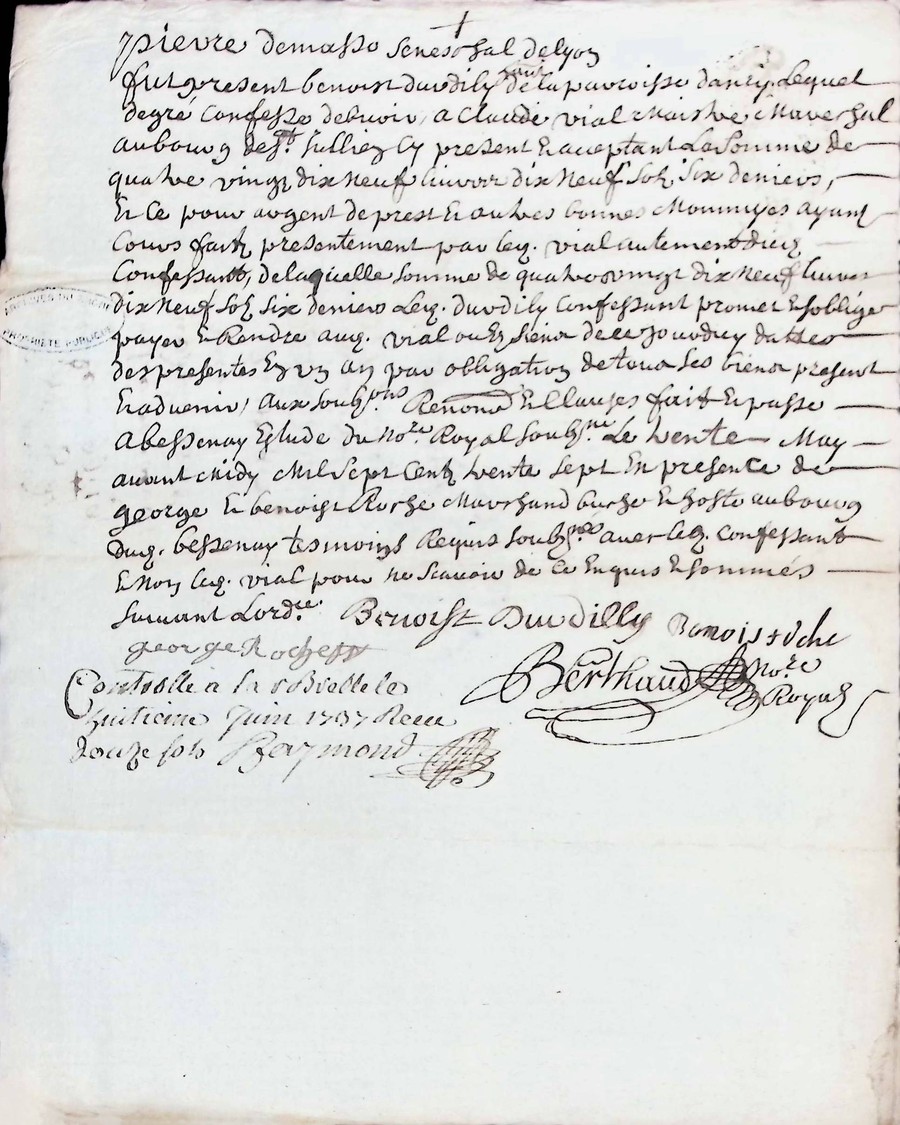 pierre demasso seneschal delyon
fut present benoist durdilly de la parroisse dancy Lequel
degré Confesse debvoir a Claude vial Maistre Mareschal
aubourg de St. Jullien Cy present Et acceptant La Somme de
quatre vingt dix Neuf livres dix Neuf Solz Six deniers,
Et Ce pour argent de prest Et autres bonnes Monnoyes ayant
Cours faitz presentement par leq. vial autement dieq
Confessant, de laquelle Somme de quatre vingt dix Neuf livres
dix Neuf Solz Six deniers Leq. durdilly Confessant promet Et soblige
payer Et Rendre auq. vial ou Es Siens de ce Jourdhuy dattes
des presentes En un an par obligation de tous Ses biens present
Et advenir, aux Soubz.ons Renonon Et Clauses fait Et passé
a bessenay Estude du No.re Royal Soubz.né Le trente May
avant Midy Mil Sept Centz trente Sept En presence de
george Et benoist Roche Marchand bucher Et hoste aubourg
duq. bessenay tesmoins Requis Soubz.nés avec leq. Confessant
Et Non leq. vial pour ne Scavoir de Ce Enquis Et Sommés
Suivant Lord.ce Benoist Durdilly Benois roche
george Roche
Berthaud No.re
Royal
Controllé a la rBrelle le
huitieme Juin 1737 Receu
douze sols Raymond